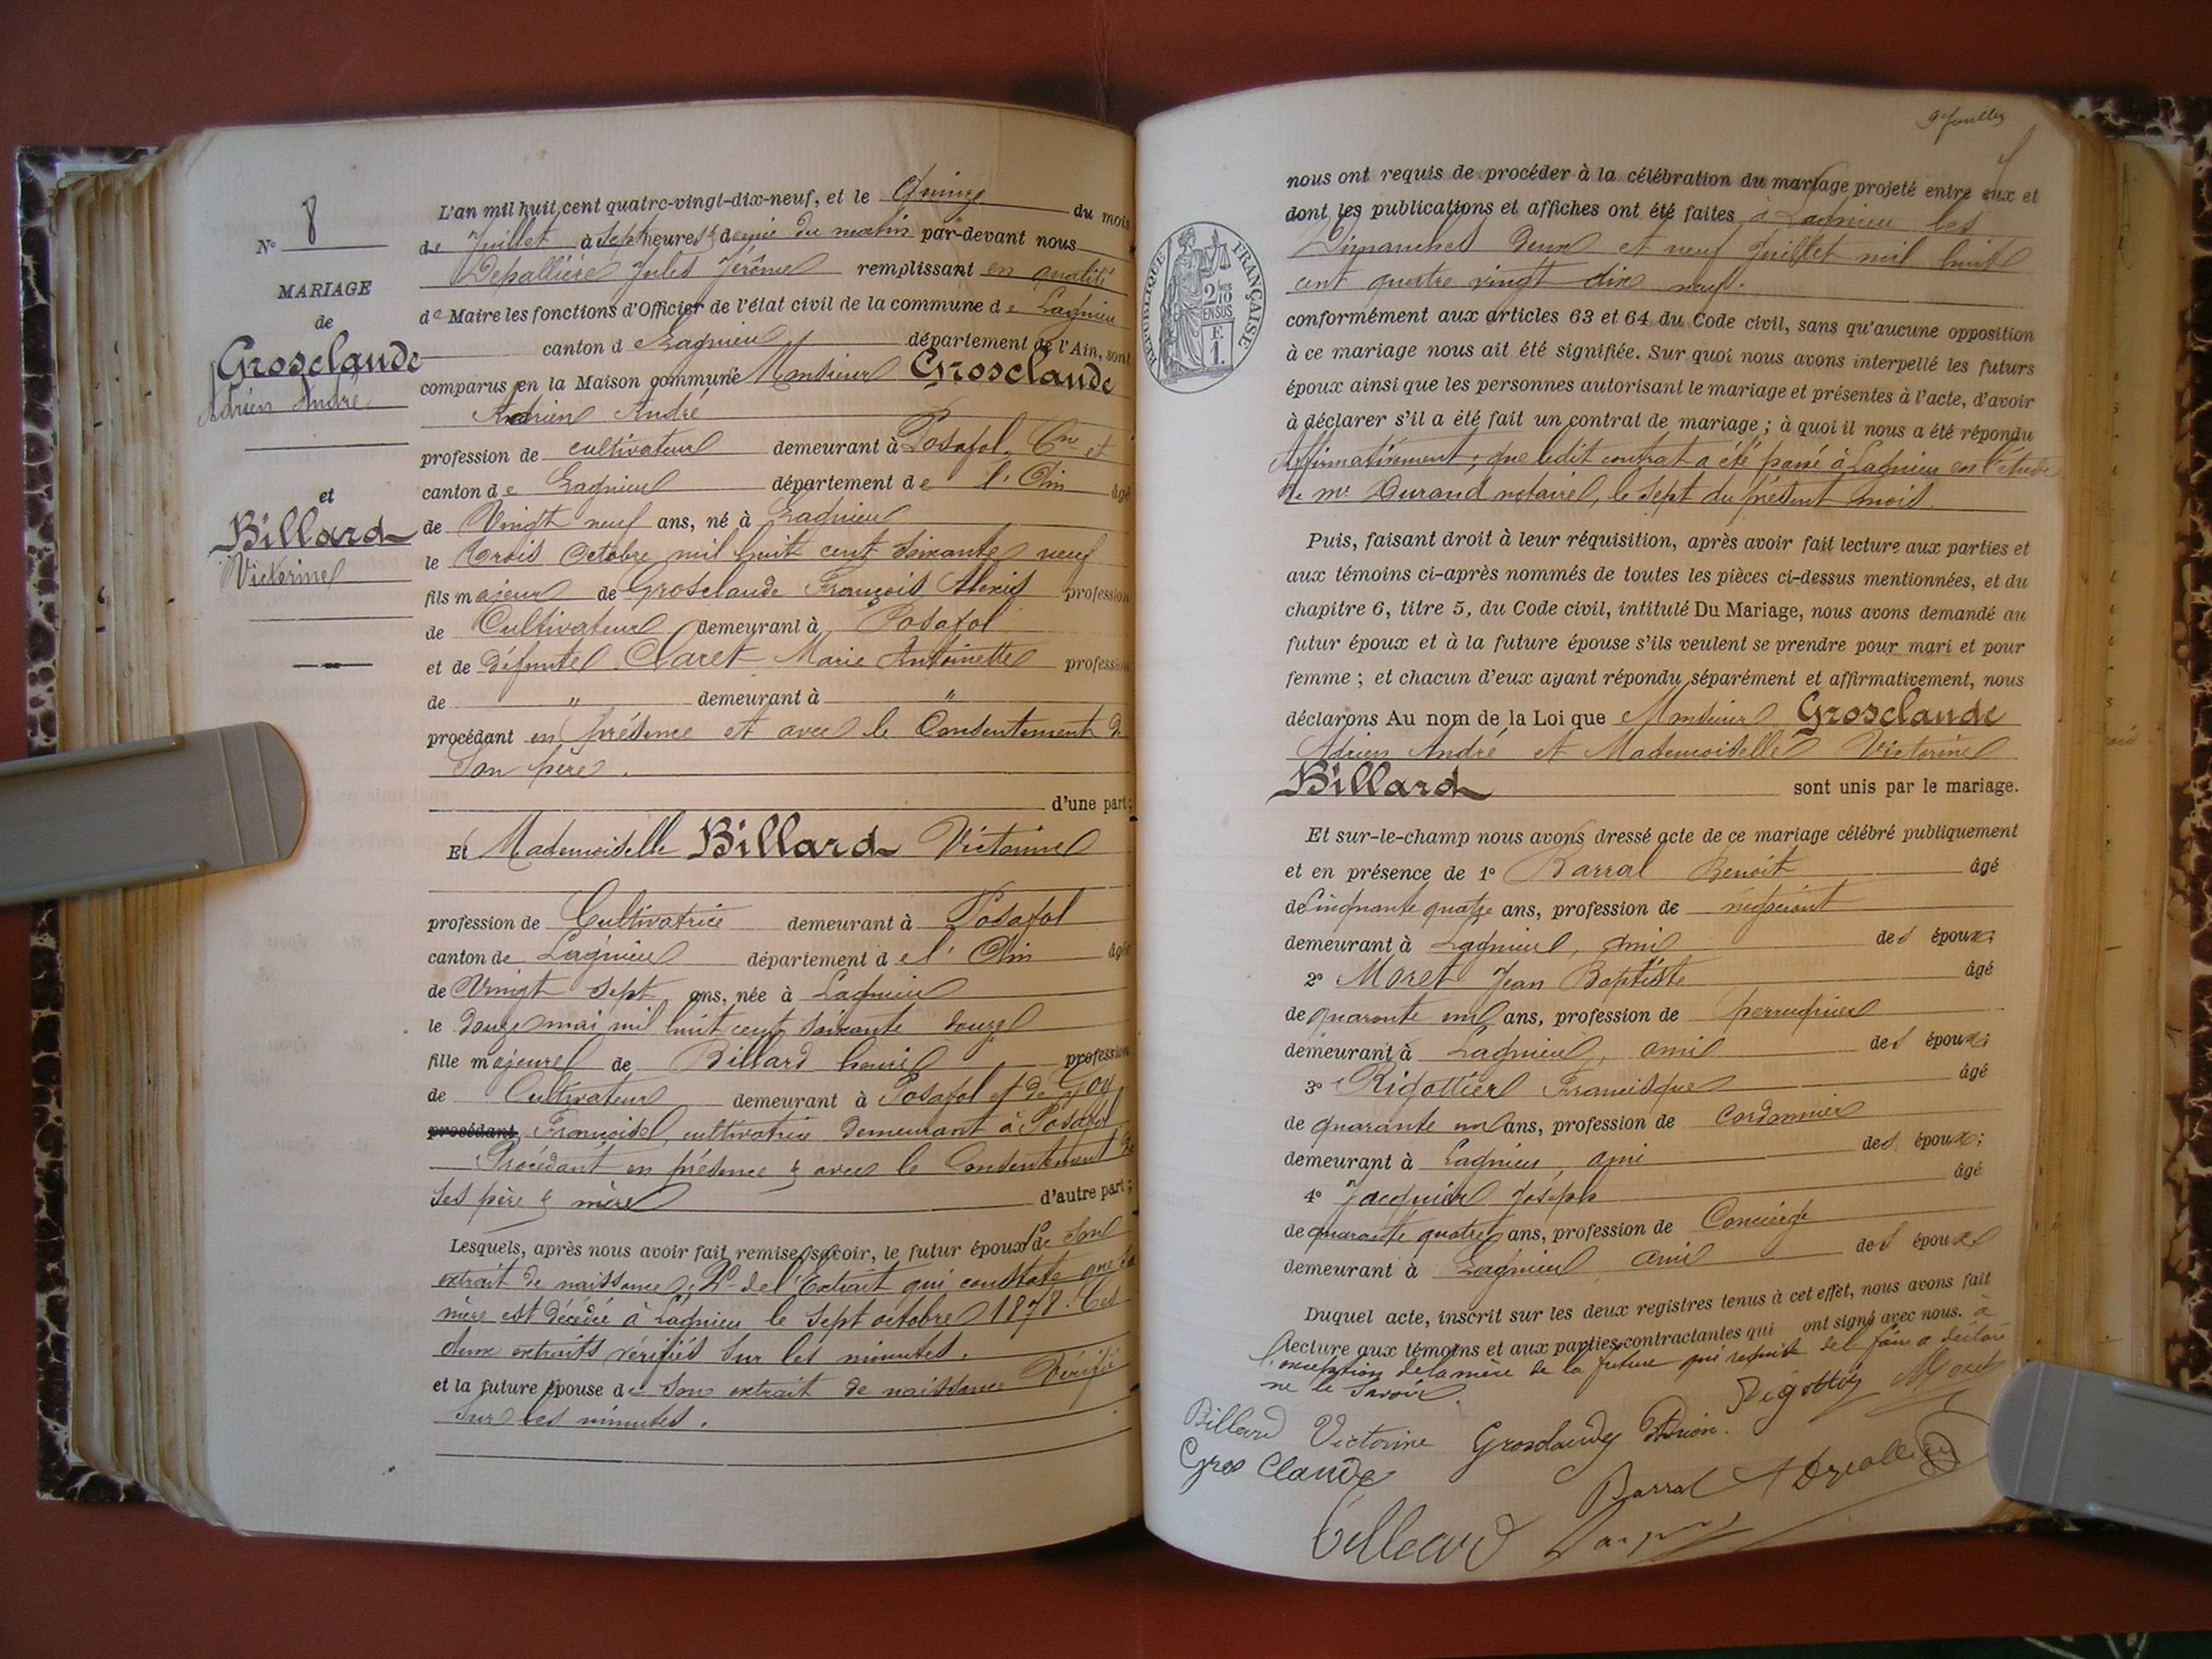 N° 8
MARIAGE
de
Grosclaude
Adrien André
et
Billard
Victorine
L'an mil huit cent quatre-vingt-dix-neuf, et le Quinze du mois
de Juillet à Sept heures & demie du matin par-devant nous
Depallière Jules Jérôme remplissant en qualité
de Maire les fonctions d'Officier de l'état civil de la commune de Lagnieu
canton de Lagnieu département de l'Ain, sont
comparus en la Maison commune Monsieur Grosclaude
Adrien André
profession de cultivateur demeurant à Posafol, Cne et
canton de Lagnieu département de l'Ain âgé
de Vingt neuf ans, né à Lagnieu
le trois Octobre mil huit cent soixante neuf
fils majeur de Grosclaude François Alexis profession
de Cultivateur demeurant à Posafol
et de défunte Claret Marie Antoinette profession
de " demeurant à "
procédant en présence et avec le Consentement de
Son père.
d'une part;
Et Mademoiselle Billard Victorine
profession de Cultivatrice demeurant à Posafol
canton de Lagnieu département de l'Ain âgée
de Vingt sept ans, née à Lagnieu
le douze mai mil huit cent soixante douze
fille majeure de Billard henri profession
de Cultivateur demeurant à Posafol et de Goy
procédant Françoise, cultivatrice demeurant à Posafol
Procédant en présence & avec le Consentement de
ses père & mère d'autre part;
Lesquels, après nous avoir fait remise, savoir, le futur époux 1° de Son
extrait de naissance; 2° de l'Extrait qui constate que sa
mère est décédée à Lagnieu le sept octobre 1878. Ces
deux extraits vérifiés sur les minutes.
et la future épouse de Son extrait de naissance Vérifié
sur les minutes.
9 Juillet
nous ont requis de procéder à la célébration du mariage projeté entre eux et
dont les publications et affiches ont été faites à Lagnieu les
Dimanches deux et neuf Juillet mil huit
cent quatre vingt dix neuf.
RÉPUBLIQUE FRANÇAISE
2/10 EN SUS
F 1.
conformément aux articles 63 et 64 du Code civil, sans qu'aucune opposition
à ce mariage nous ait été signifiée. Sur quoi nous avons interpellé les futurs
époux ainsi que les personnes autorisant le mariage et présentes à l'acte, d'avoir
à déclarer s'il a été fait un contrat de mariage; à quoi il nous a été répondu
Affirmativement, que ledit contrat a été passé à Lagnieu en l'étude
de me Durand notaire, le sept du présent mois.
Puis, faisant droit à leur réquisition, après avoir fait lecture aux parties et
aux témoins ci-après nommés de toutes les pièces ci-dessus mentionnées, et du
chapitre 6, titre 5, du Code civil, intitulé Du Mariage, nous avons demandé au
futur époux et à la future épouse s'ils veulent se prendre pour mari et pour
femme; et chacun d'eux ayant répondu séparément et affirmativement, nous
déclarons Au nom de la Loi que Monsieur Grosclaude
Adrien André et Mademoiselle Victorine
Billard sont unis par le mariage.
Et sur-le-champ nous avons dressé acte de ce mariage célébré publiquement
et en présence de 1° Barral Benoît âgé
de Cinquante quatre ans, profession de négociant
demeurant à Lagnieu, ami des époux;
2° Moret Jean Baptiste âgé
de quarante un ans, profession de perruquier
demeurant à Lagnieu, ami des époux;
3° Rigottier Francisque âgé
de quarante un ans, profession de Cordonnier
demeurant à Lagnieu, ami des époux;
4° Jacquier Joseph âgé
de quarante quatre ans, profession de Concierge
demeurant à Lagnieu ami des époux
Duquel acte, inscrit sur les deux registres tenus à cet effet, nous avons fait
lecture aux témoins et aux parties contractantes qui ont signé avec nous. à
l'exception de la mère de la future qui requise de le faire a déclaré
ne le savoir.
Rigottier Moret
Billard Victorine Grosclaude Adrien.
Gros Claude
Barral
Billard